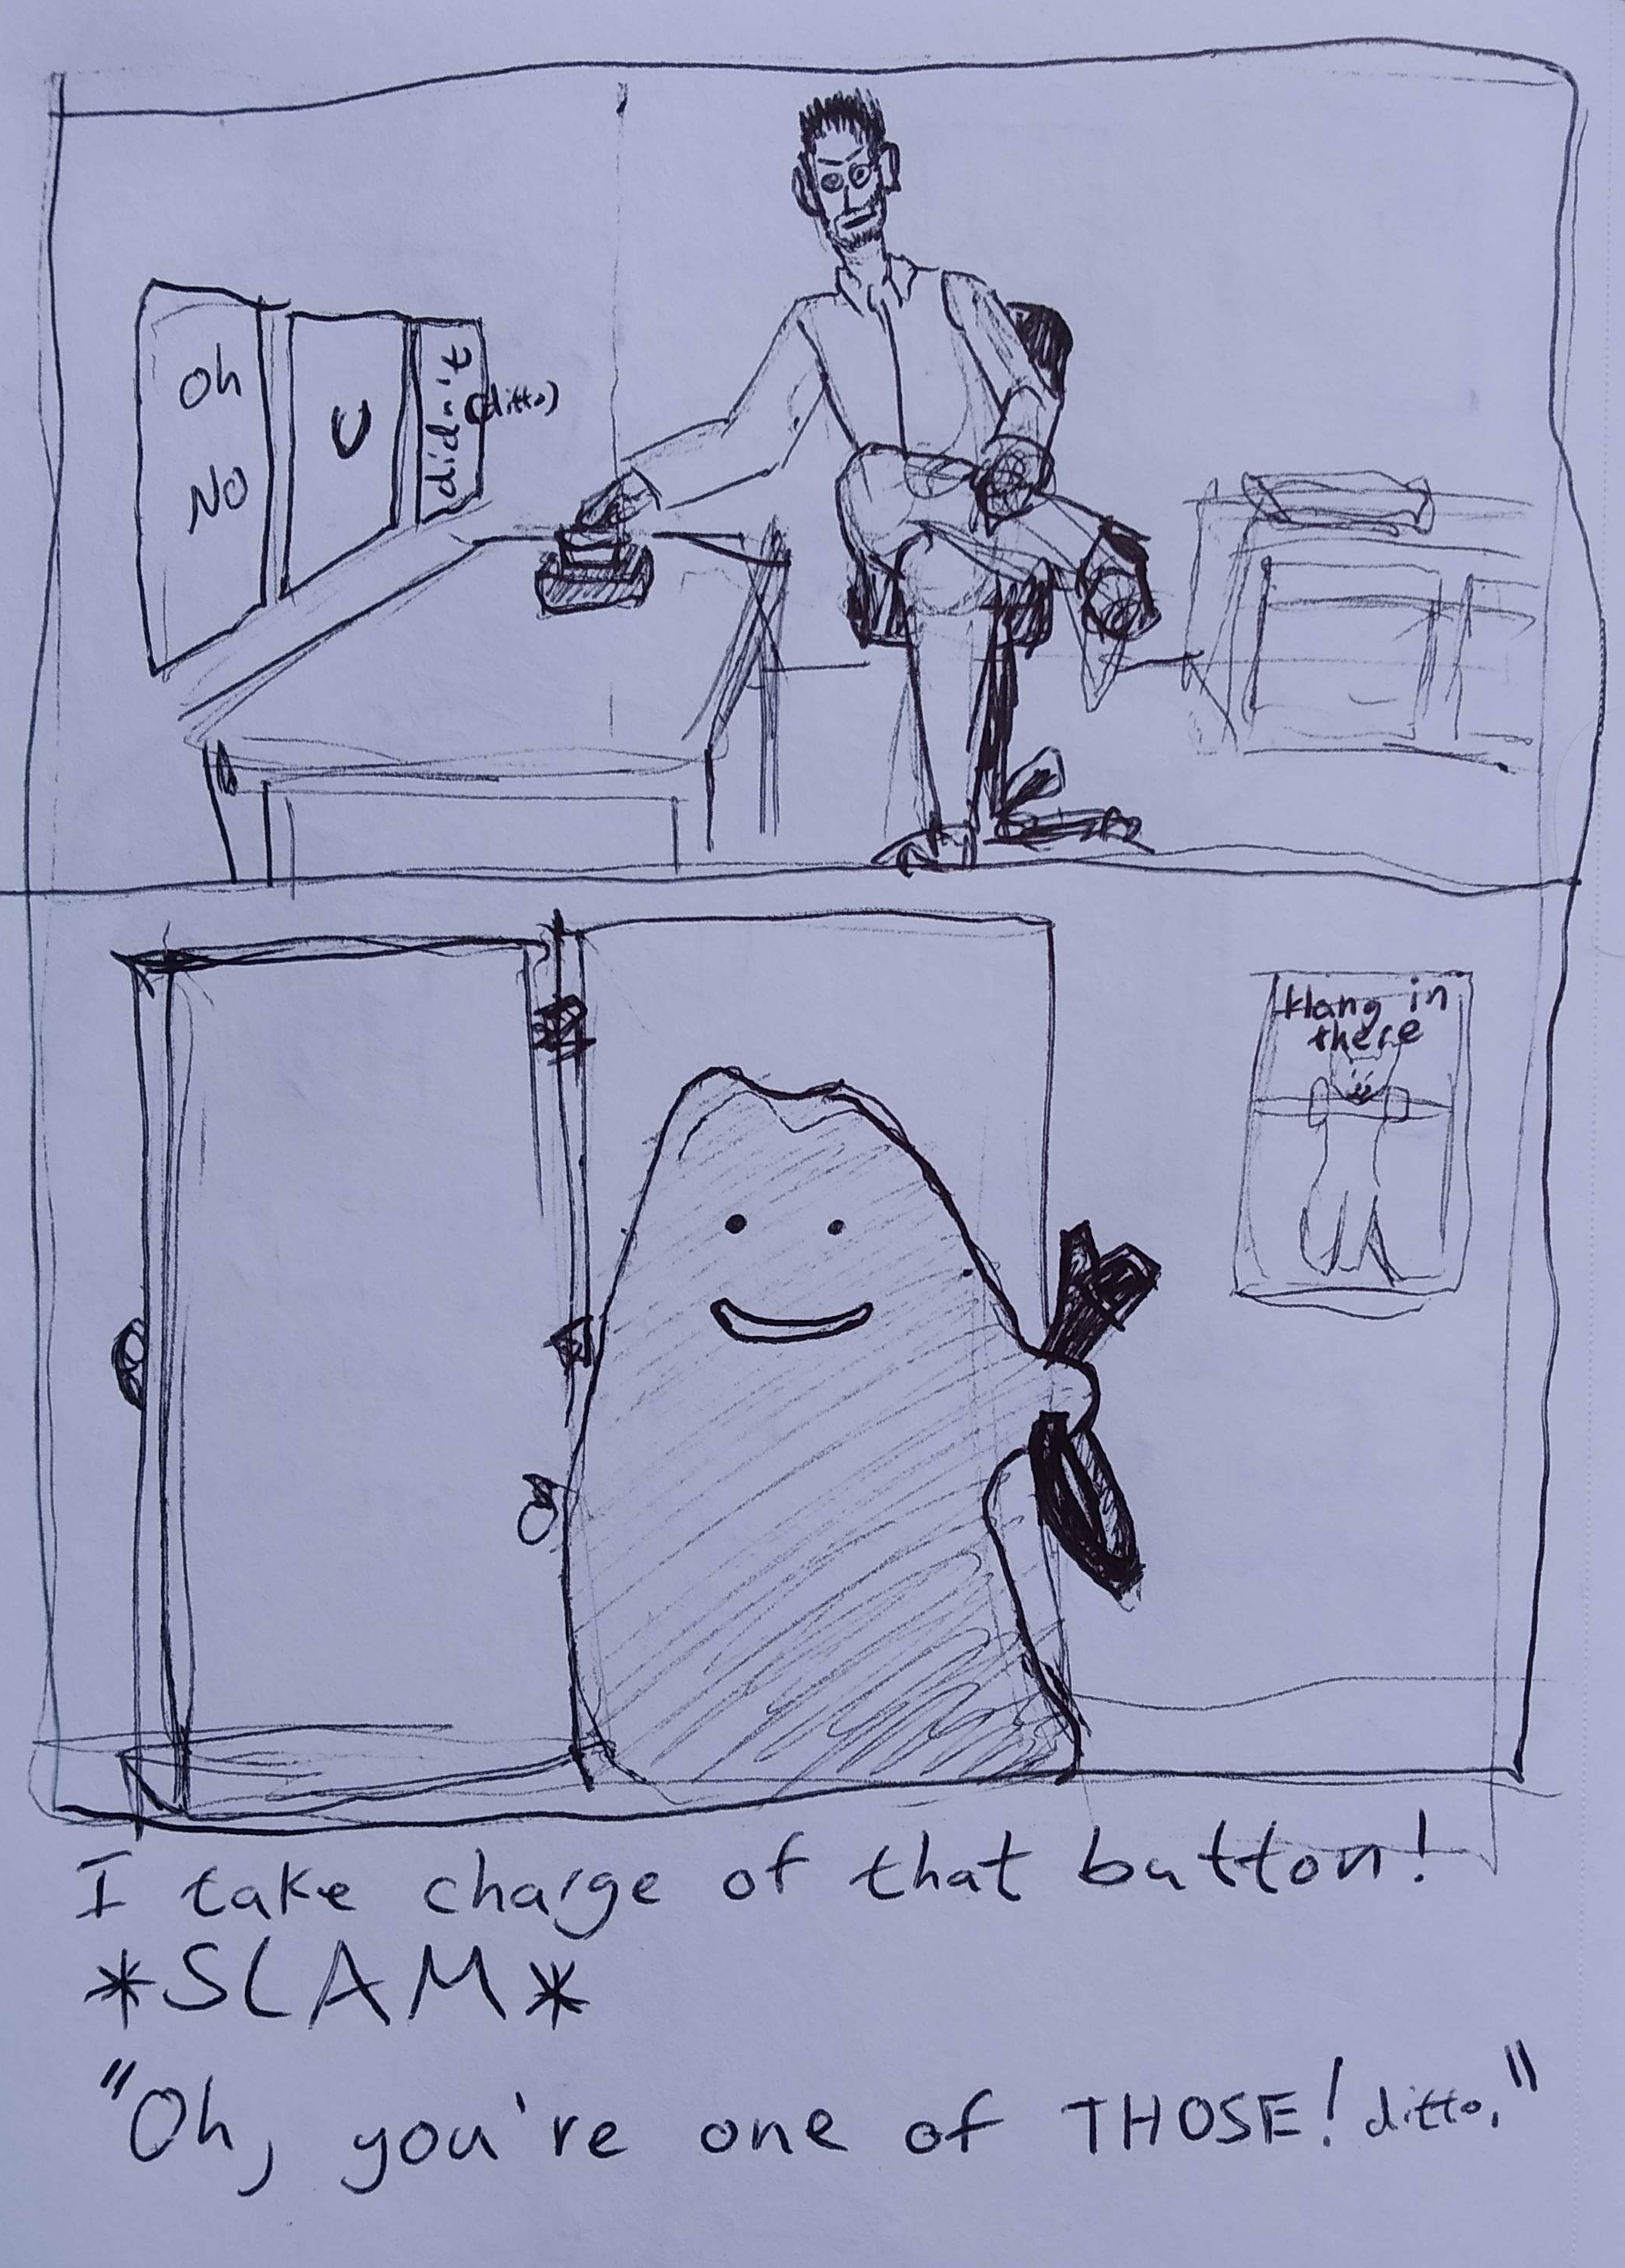 Oh
NO
U
didn't
(ditto)
Hang in
there
I take charge of that button!
*SLAM*
"Oh, you're one of THOSE! ditto."